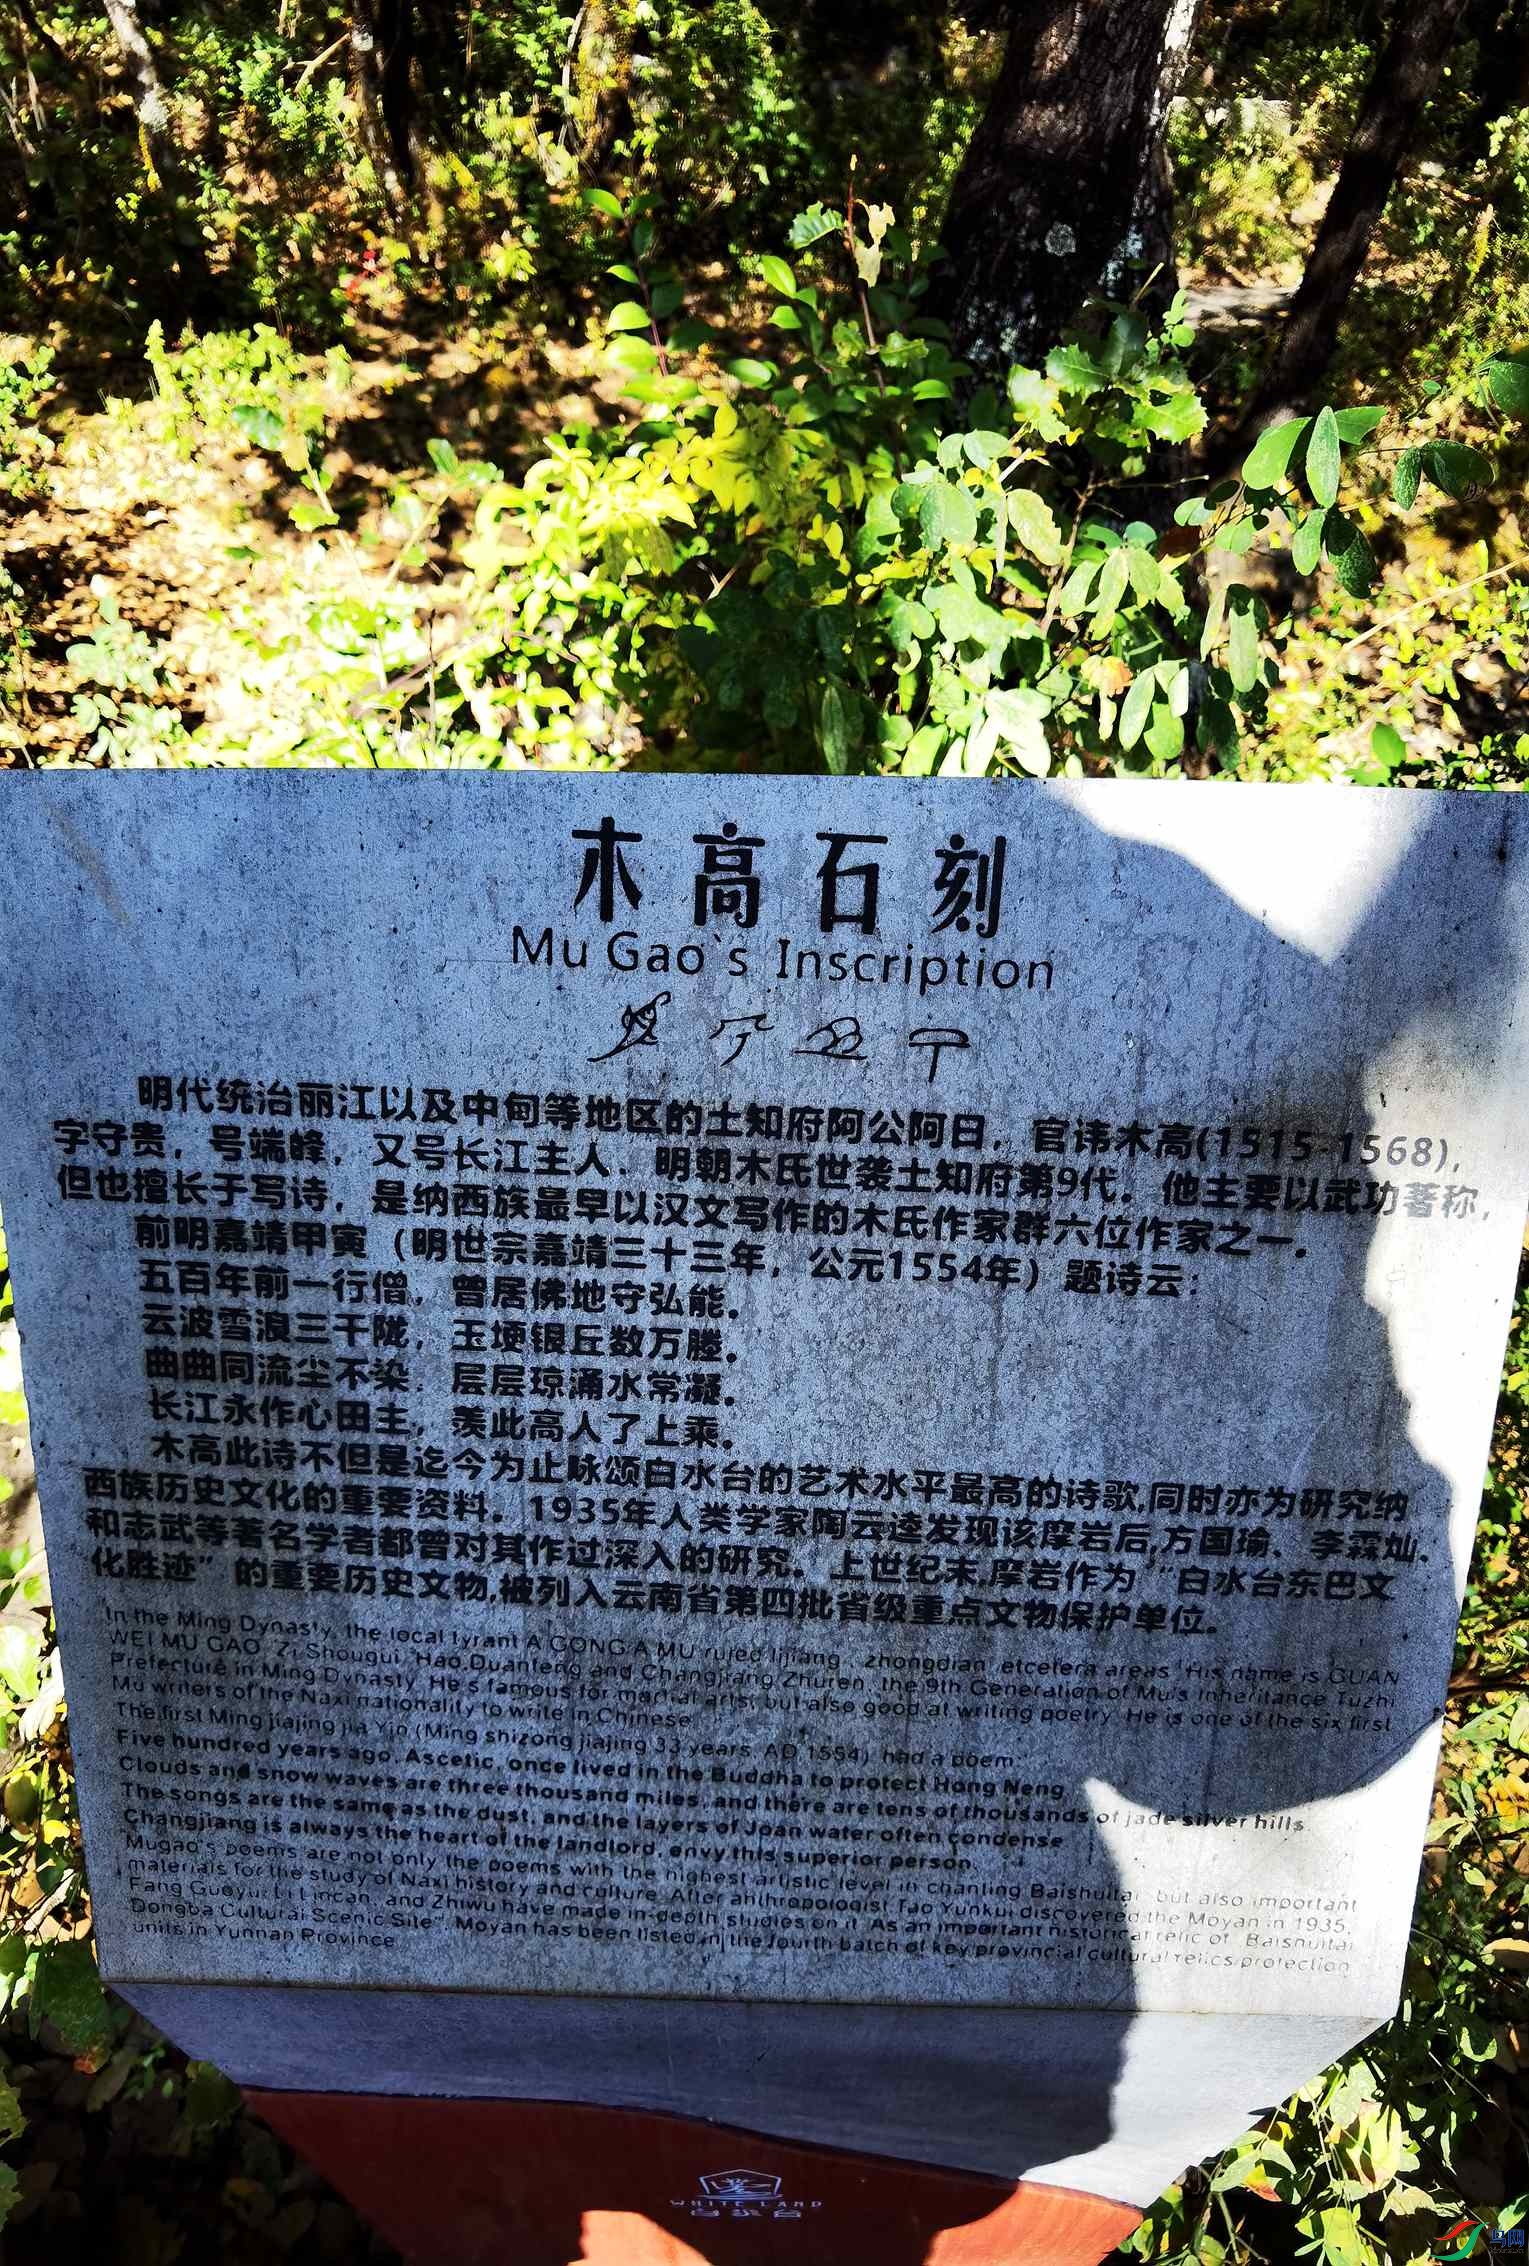 木高石刻
Mu Gao`s Inscription
明代统治丽江以及中甸等地区的土知府阿公阿日，官讳木高(1515-1568)，
字守贵，号端峰，又号长江主人．明朝木氏世袭土知府第9代．他主要以武功著称，
但也擅长于写诗，是纳西族最早以汉文写作的木氏作家群六位作家之一．
前明嘉靖甲寅（明世宗嘉靖三十三年，公元1554年）题诗云：
五百年前一行僧，曾居佛地守弘能。
云波雪浪三千陇，玉埂银丘数万塍。
曲曲同流尘不染．层层琼涌水常凝。
长江永作心田主，羡此高人了上乘。
木高此诗不但是迄今为止咏颂白水台的艺术水平最高的诗歌,同时亦为研究纳
西族历史文化的重要资料．1935年人类学家陶云逵发现该摩岩后,方国瑜、李霖灿、
和志武等著名学者都曾对其作过深入的研究．上世纪末,摩岩作为“白水台东巴文
化胜迹”的重要历史文物,被列入云南省第四批省级重点文物保护单位。
In the Ming Dynasty, the local tyrant A GONG A MU ruled lijiang , zhongdian etcetera areas His name is GUAN
WEI MU GAO Zi Shougui, Hao Duanfeng and Changjiang Zhuren, the 9th Generation of Mu's Inheritance Tuzhi
Prefecture in Ming Dynasty. He's famous for martial arts, but also good at writing poetry. He is one of the six first
Mu writers of the Naxi nationality to write in Chinese
The first Ming jiajing jia Yin (Ming shizong jiajing 33 years, AD 1554) had a poem:
Five hundred years ago, Ascetic, once lived in the Buddha to protect Hong Neng
Clouds and snow waves are three thousand miles, and there are tens of thousands of jade silver hills.
The songs are the same as the dust, and the layers of Joan water often condense
Changjiang is always the heart of the landlord, envy this superior person.
Mugao's poems are not only the poems with the highest artistic level in chanting Baishuitai but also important
materials for the study of Naxi history and culture. After anthropologist Tao Yunkui discovered the Moyan in 1935,
Fang Guoyu, Li Lincan, and Zhiwu have made in-depth studies on it. As an important historical relic of "Baishuitai
Dongba Cultural Scenic Site", Moyan has been listed in the fourth batch of key provincial cultural relics protection
units in Yunnan Province
WHITE LAND
白水台
鸟网